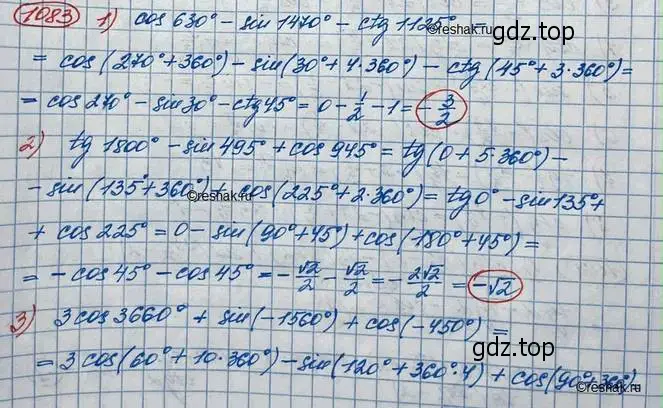 1083 1) cos 630° - sin 1470° - ctg 1125° =
©reshak.ru
gdz.top
= cos(270° + 360°) - sin(30° + 4·360°) - ctg(45° + 3·360°) =
= cos 270° - sin 30° - ctg 45° = 0 - 1/2 - 1 = -3/2
2) tg 1800° - sin 495° + cos 945° = tg(0 + 5·360°) -
- sin(135° + 360°) + cos(225° + 2·360°) = tg 0° - sin 135° +
©reshak.ru
+ cos 225° = 0 - sin(90° + 45°) + cos(180° + 45°) =
= - cos 45° - cos 45° = -√2/2 - √2/2 = -2√2/2 = -√2
3) 3 cos 3660° + sin(-1560°) + cos(-450°) =
gdz.top
= 3 cos(60° + 10·360°) - sin(120° + 360°·4) + cos(90° + 360°) =